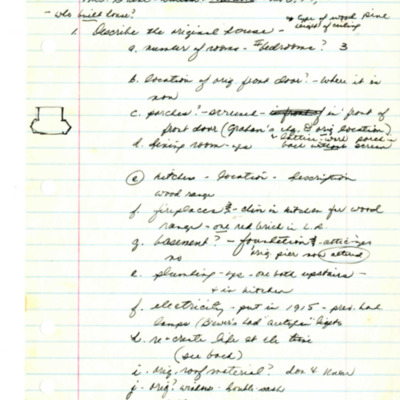 - who built house? * type of wood Pine
height of ceiling
1. Describe the original house -
a. number of rooms - # bedrooms? 3
b. location of orig front door? - where it is
now
c. porches? - screened - in front of
front door (Graham's chg. orig location)
d. dining room - yes back without screen
e kitchen - location - description
wood range
f. fireplaces? - chim in kitchen for wood
range - one red brick in L.R.
g. basement? - foundation? - attic - yes
no orig pier now altered
e. plumbing - yes - one bath upstairs -
+ in kitchen
f. electricity - put in 1915 - prev. had
lamps (Brewer's had "acetylene" lights
h. re-create life at the time
(see back)
i. orig. roof material? don't know
j. orig? windows - double sash